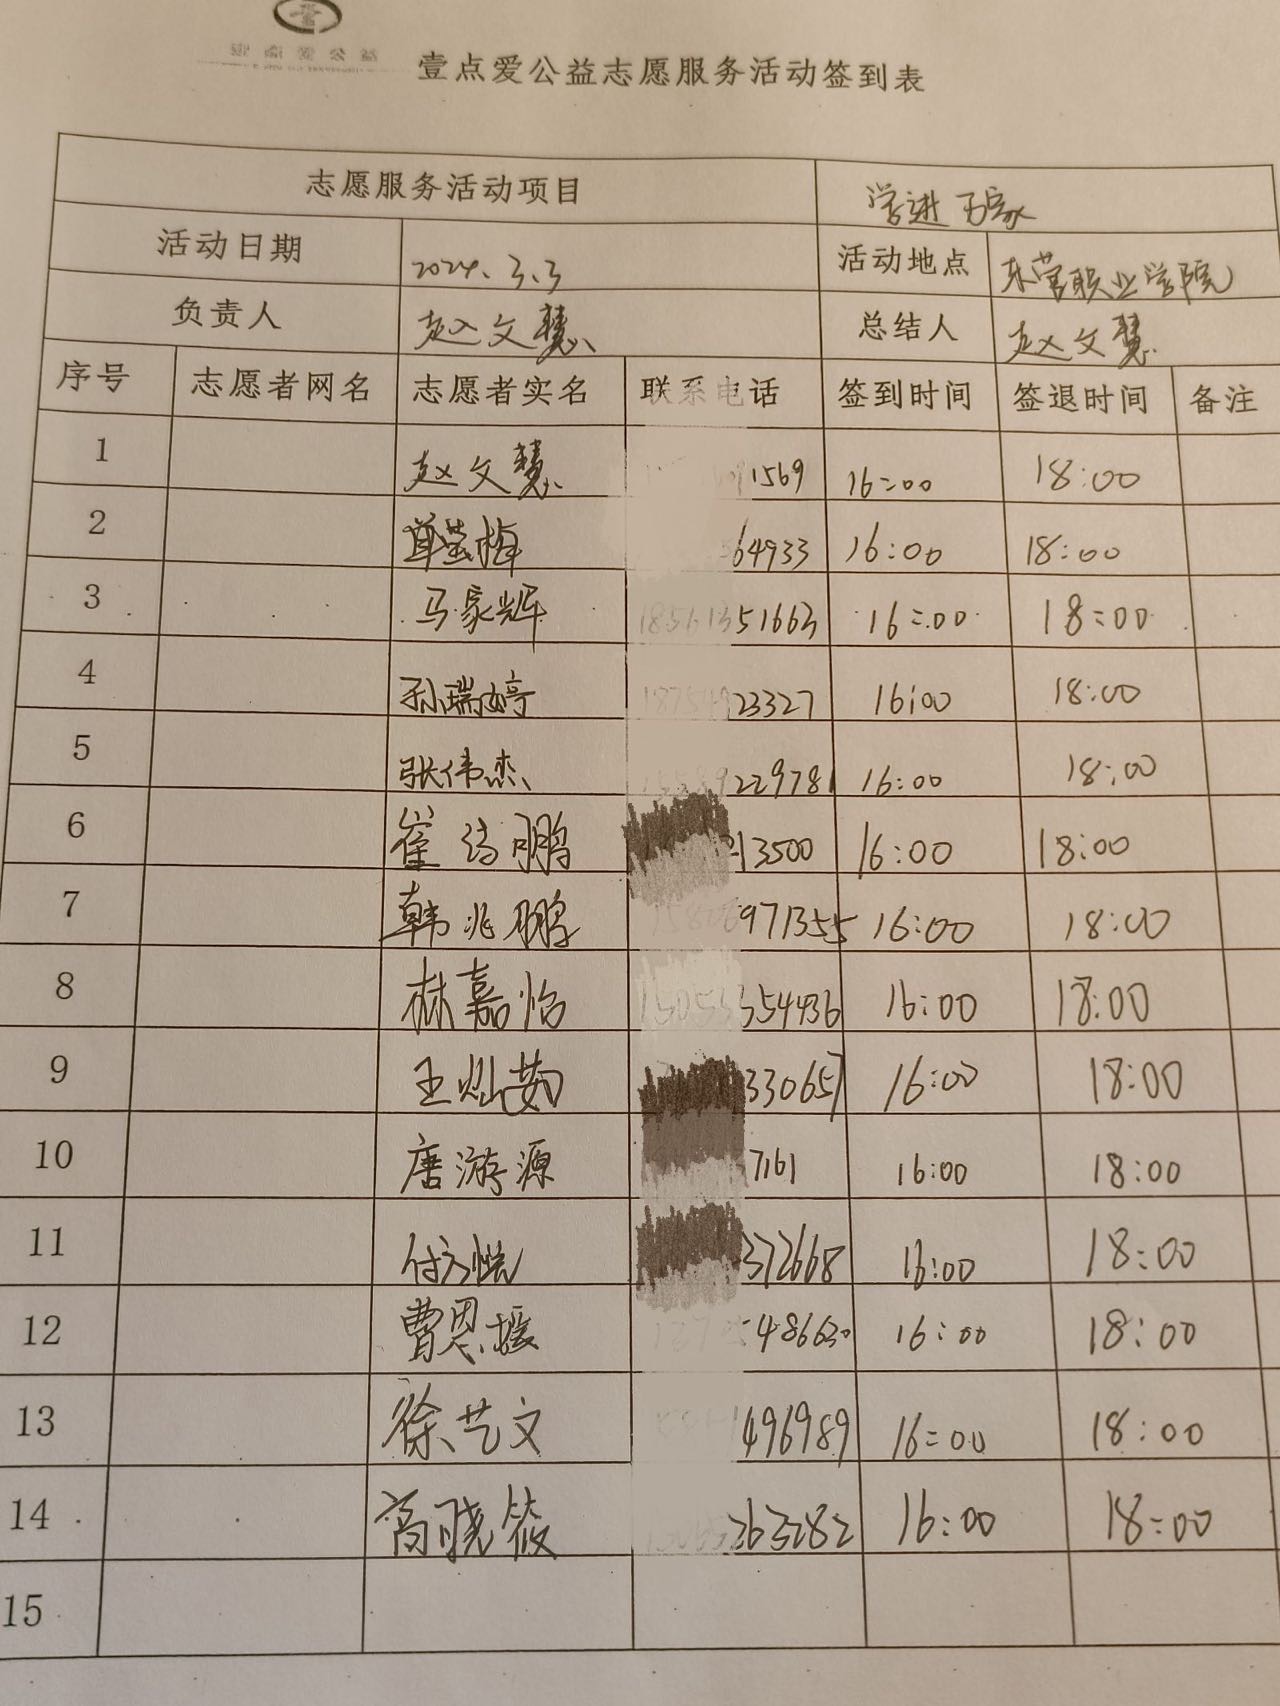 壹点爱公益志愿服务活动签到表
志愿服务活动项目 学进万家
活动日期 2024.3.3 活动地点 东营职业学院
负责人 赵文慧 总结人 赵文慧
序号 志愿者网名 志愿者实名 联系电话 签到时间 签退时间 备注
1 赵文慧 1569 16:00 18:00
2 64933 16:00 18:00
3 马家辉 51663 16:00 18:00
4 孙瑞婷 23327 16:00 18:00
5 张伟杰 229781 16:00 18:00
6 崔 鹏 13500 16:00 18:00
7 韩兆鹏 971355 16:00 18:00
8 林嘉怡 354436 16:00 18:00
9 王灿茹 330657 16:00 18:00
10 唐游源 7161 16:00 18:00
11 372668 16:00 18:00
12 曹恩媛 486630 16:00 18:00
13 徐艺文 496989 16:00 18:00
14 高晓筱 263282 16:00 18:00
15